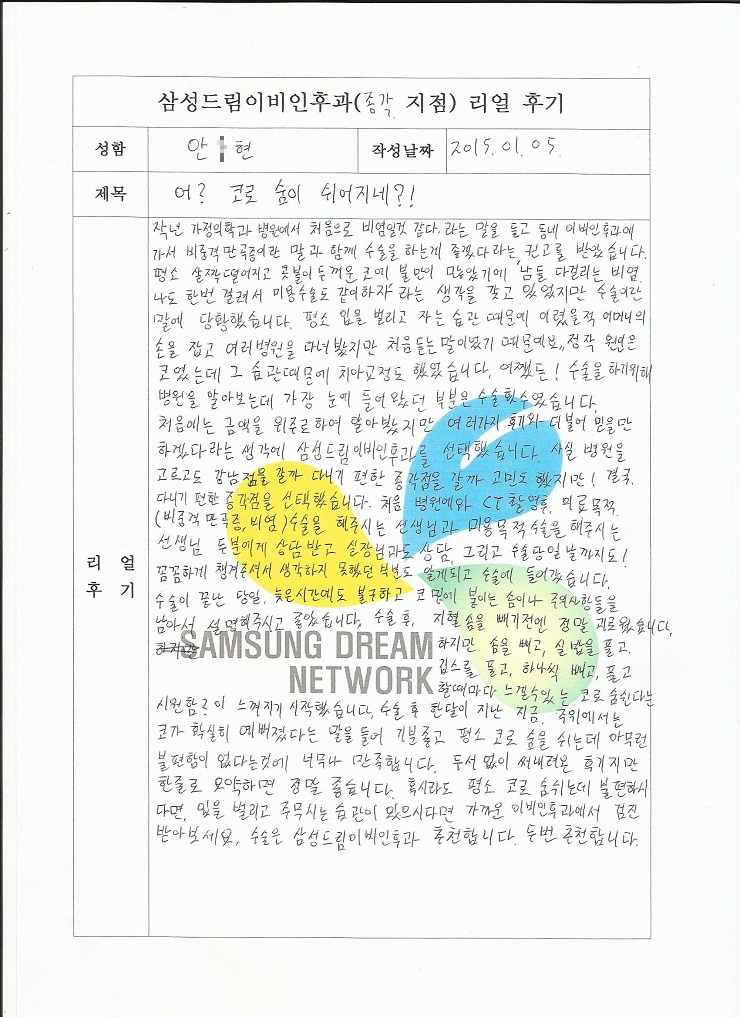 삼성드림이비인후과(종각 지점) 리얼 후기
성함 안 현 작성날짜 2015. 01. 05.
제목 어? 코로 숨이 쉬어지네?!
리 얼
후 기
작년 가정의학과 병원에서 처음으로 비염일것 같다. 라는 말을 듣고 동네 이비인후과에
가서 비중격만곡증이란 말과 함께 수술을 하는게 좋겠다라는 권고를 받았습니다.
평소 살짝 떨어지고 콧볼이 두꺼운 코에 불만이 많았기에 '남들 다걸리는 비염
나도 한번 걸려서 미용수술도 같이하자' 라는 생각을 갖고 있었지만 수술이란
말에 당황했습니다. 평소 입을 벌리고 자는 습관 때문에 어렸을적 어머니의
손을 잡고 여러병원을 다녀봤지만 처음듣는 말이었기 때문에요,, 정작 원인은
코였는데 그 습관때문에 치아교정도 했었습니다. 어쨌든! 수술을 하기위해
병원을 알아보는데 가장 눈에 들어왔던 부분은 수술횟수였습니다.
처음에는 금액을 위주로하여 알아봤지만 여러가지 후기와 더불어 믿을만
하겠다라는 생각에 삼성드림이비인후과를 선택했습니다. 사실 병원을
고르고도 강남점을 갈까 다니기 편한 종각점을 갈까 고민도 했지만! 결국.
다니기 편한 종각점을 선택했습니다. 처음 병원에와 CT촬영후, 의료목적
(비중격만곡증, 비염)수술을 해주시는 선생님과 미용목적 수술을 해주시는
선생님 두분에게 상담받고 실장님과도 상담, 그리고 수술당일 날까지도!
꼼꼼하게 챙겨주셔서 생각하지 못했던 부분도 알게되고 수술에 들어갔습니다.
수술이 끝난 당일, 늦은시간에도 불구하고 코 밑에 붙이는 솜이나 주의사항들을
남아서 설명해주시고 좋았습니다, 수술 후, 지혈 솜을 빼기전엔 정말 괴로웠습니다,
하지만 솜을 빼고, 실밥을 풀고.
깁스를 풀고, 하나씩 빼고, 풀고
할때마다 느낄수있는 코로 숨쉰다는
시원함?이 느껴지기 시작했습니다. 수술 후 한달이 지난 지금, 주위에서는
코가 확실히 예뻐졌다는 말을 들어 기분좋고 평소 코로 숨을 쉬는데 아무런
불편함이 없다는것에 너무나 만족합니다. 두서 없이 써내려온 후기지만
한줄로 요약하면 정말 좋습니다. 혹시라도 평소 코로 숨쉬는데 불편하시
다면, 입을 벌리고 주무시는 습관이 있으시다면 가까운 이비인후과에서 검진
받아보세요, 수술은 삼성드림이비인후과 추천합니다. 두번 추천합니다.
SAMSUNG DREAM
NETWORK